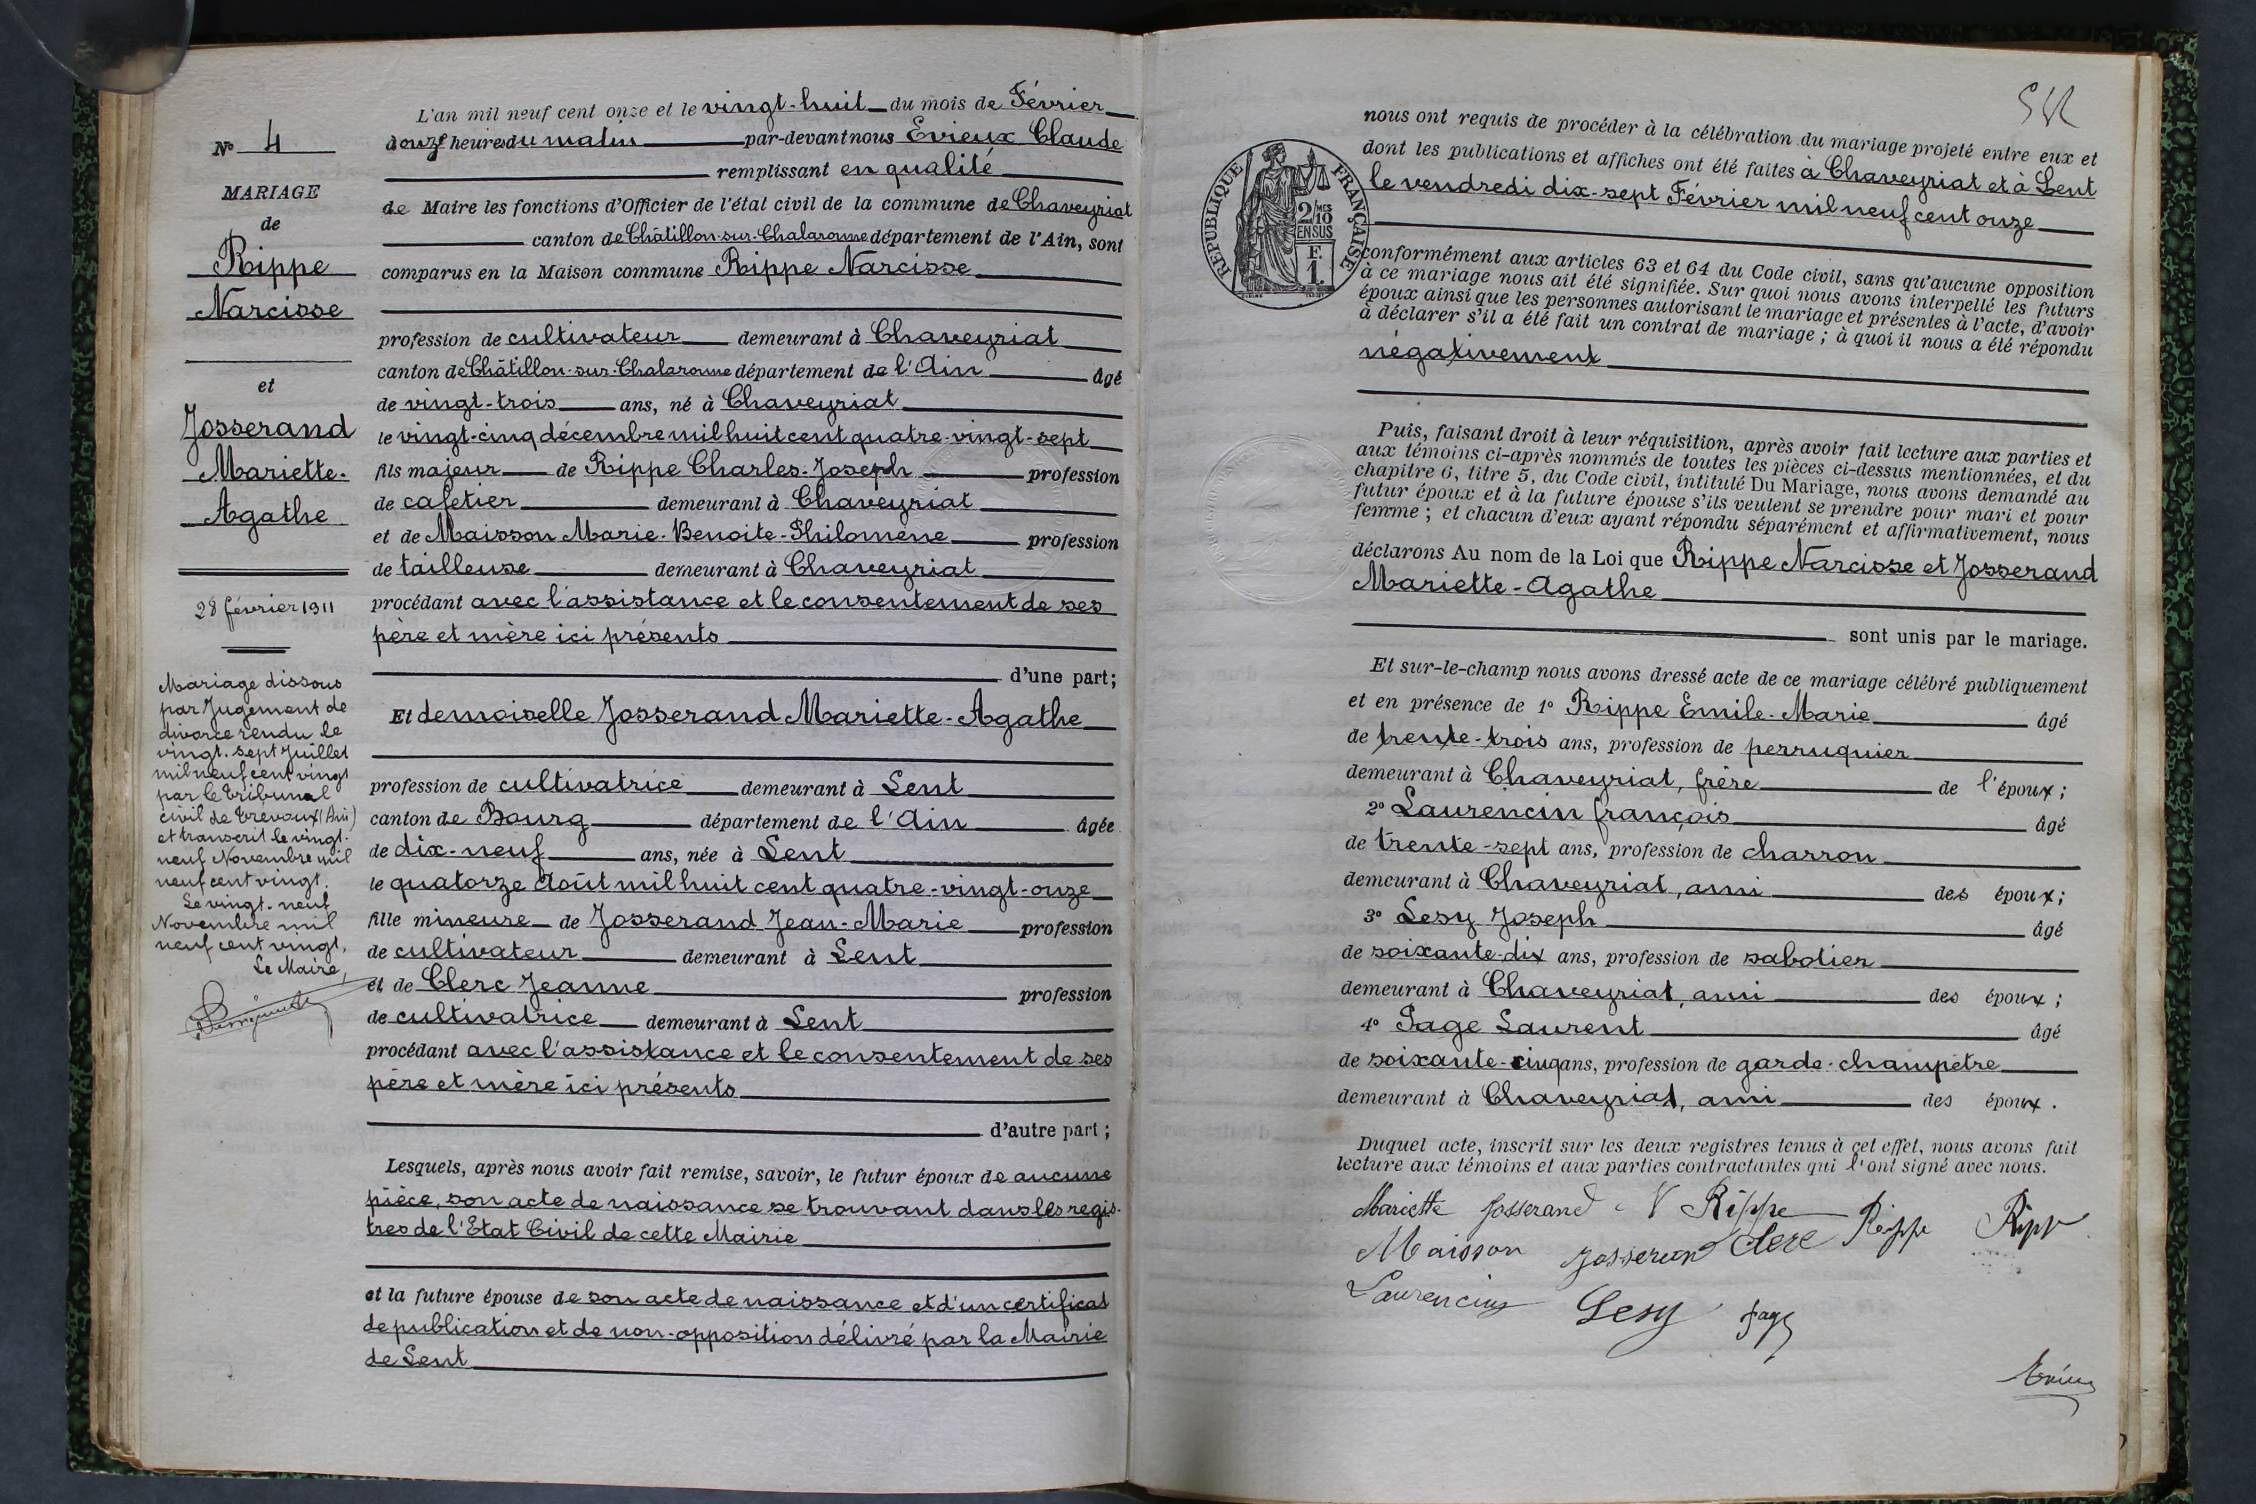 L'an mil neuf cent onze et le vingt-huit du mois de Février
douze heures du matin par-devant nous Evieux Claude
remplissant en qualité
de Maire les fonctions d'Officier de l'état civil de la commune de Chaveyriat
canton de Châtillon-sur-Chalaronne département de l'Ain, sont
comparus en la Maison commune Rippe Narcisse
profession de cultivateur demeurant à Chaveyriat
canton de Châtillon-sur-Chalaronne département de l'Ain âgé
de vingt-trois ans, né à Chaveyriat
le vingt-cinq décembre mil huit cent quatre-vingt-sept
fils majeur de Rippe Charles-Joseph profession
de cafetier demeurant à Chaveyriat
et de Maisson Marie-Benoite-Philomène profession
de tailleuse demeurant à Chaveyriat
procédant avec l'assistance et le consentement de ses
père et mère ici présents
d'une part;
Et demoiselle Josserand Mariette-Agathe
profession de cultivatrice demeurant à Lent
canton de Bourg département de l'Ain âgée
de dix-neuf ans, née à Lent
le quatorze Août mil huit cent quatre-vingt-onze
fille mineure de Josserand Jean-Marie profession
de cultivateur demeurant à Lent
et de Clerc Jeanne profession
de cultivatrice demeurant à Lent
procédant avec l'assistance et le consentement de ses
père et mère ici présents
d'autre part;
Lesquels, après nous avoir fait remise, savoir, le futur époux de aucune
pièce, son acte de naissance se trouvant dans les regis-
tres de l'Etat Civil de cette Mairie
et la future épouse de son acte de naissance et d'un certificat
de publication et de non-opposition délivré par la Mairie
de Lent
N° 4
MARIAGE
de
Rippe
Narcisse
et
Josserand
Mariette-
Agathe
28 février 1911
Mariage dissous
par Jugement de
divorce rendu le
vingt-sept Juillet
mil neuf cent vingt
par le Tribunal
civil de Trévoux (Ain)
et transcrit le vingt-
neuf Novembre mil
neuf cent vingt.
Le vingt-neuf
Novembre mil
neuf cent vingt.
Le Maire,
nous ont requis de procéder à la célébration du mariage projeté entre eux et
dont les publications et affiches ont été faites à Chaveyriat et à Lent
le vendredi dix-sept Février mil neuf cent onze
RÉPUBLIQUE FRANÇAISE
2/10 MES
EN SUS
F.
1.
conformément aux articles 63 et 64 du Code civil, sans qu'aucune opposition
à ce mariage nous ait été signifiée. Sur quoi nous avons interpellé les futurs
époux ainsi que les personnes autorisant le mariage et présentes à l'acte, d'avoir
à déclarer s'il a été fait un contrat de mariage; à quoi il nous a été répondu
négativement
Puis, faisant droit à leur réquisition, après avoir fait lecture aux parties et
aux témoins ci-après nommés de toutes les pièces ci-dessus mentionnées, et du
chapitre 6, titre 5, du Code civil, intitulé Du Mariage, nous avons demandé au
futur époux et à la future épouse s'ils veulent se prendre pour mari et pour
femme; et chacun d'eux ayant répondu séparément et affirmativement, nous
déclarons Au nom de la Loi que Rippe Narcisse et Josserand
Mariette-Agathe
sont unis par le mariage.
Et sur-le-champ nous avons dressé acte de ce mariage célébré publiquement
et en présence de 1° Rippe Emile-Marie âgé
de trente-trois ans, profession de perruquier
demeurant à Chaveyriat, frère de l'époux;
2° Laurencin françois âgé
de trente-sept ans, profession de charron
demeurant à Chaveyriat, ami des époux;
3° Lesy Joseph âgé
de soixante-dix ans, profession de sabotier
demeurant à Chaveyriat, ami des époux;
4° Page Laurent âgé
de soixante-cinq ans, profession de garde-champêtre
demeurant à Chaveyriat, ami des époux.
Duquel acte, inscrit sur les deux registres tenus à cet effet, nous avons fait
lecture aux témoins et aux parties contractantes qui l'ont signé avec nous.
Mariette Josserand N Rippe Rippe Ripp
Maisson Josseran Clerc
Laurencin Lesy Page
Evieux